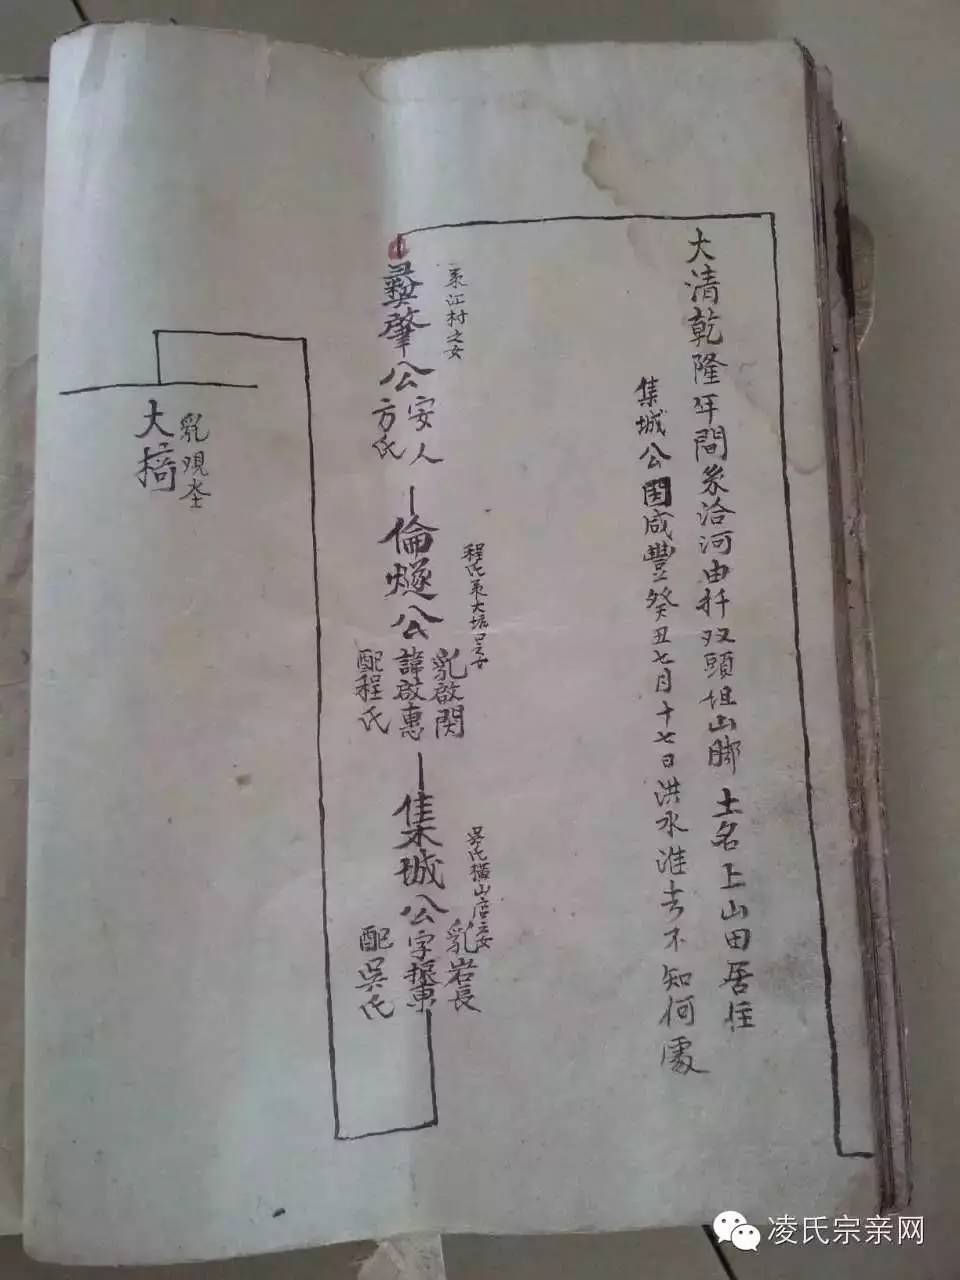 大清乾隆年間象洽河由扦双頭坦山脚 土名上山田居住
集城公因咸豐癸丑七月十七日洪水淮去不知何處
系江村之女
彝肇公
安人
方氏
程氏系大坑口之女
倫燧公
乳啟閔
諱啟惠
配程氏
吴氏橫山店之女
集城公
乳岩長
字振東
配吳氏
乳观
大
凌氏宗亲网